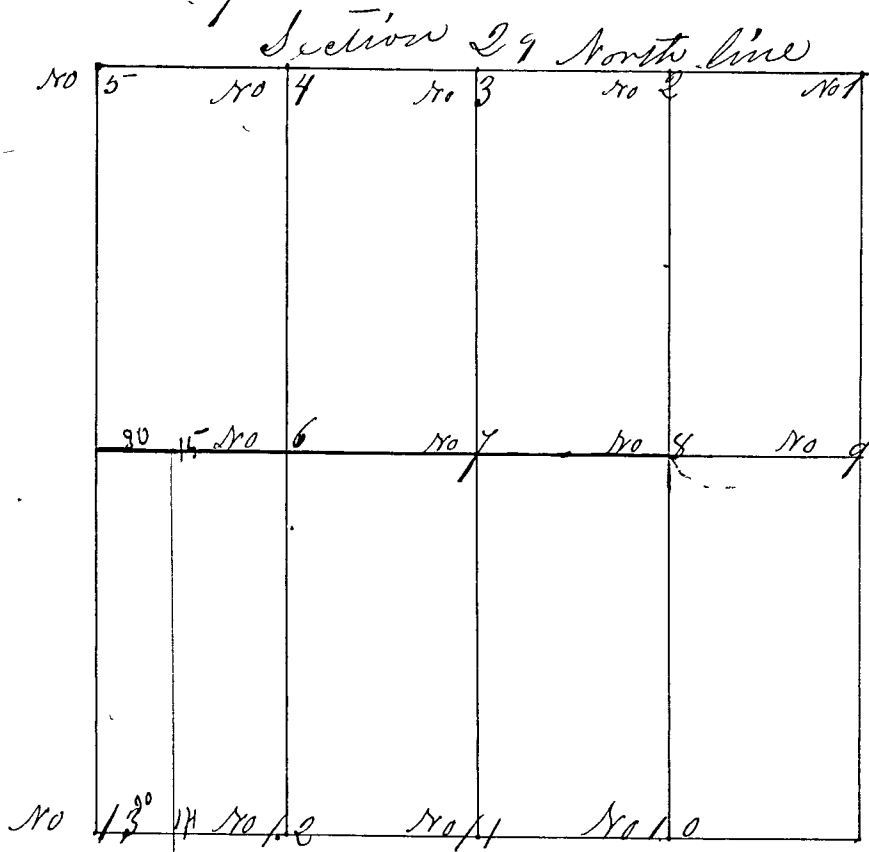 Section 29 North line
No 5 No 4 No 3 No 2 No 1
80 15 No 6 No 7 No 8 No 9
No 13 20 14 No 12 No 11 No 10